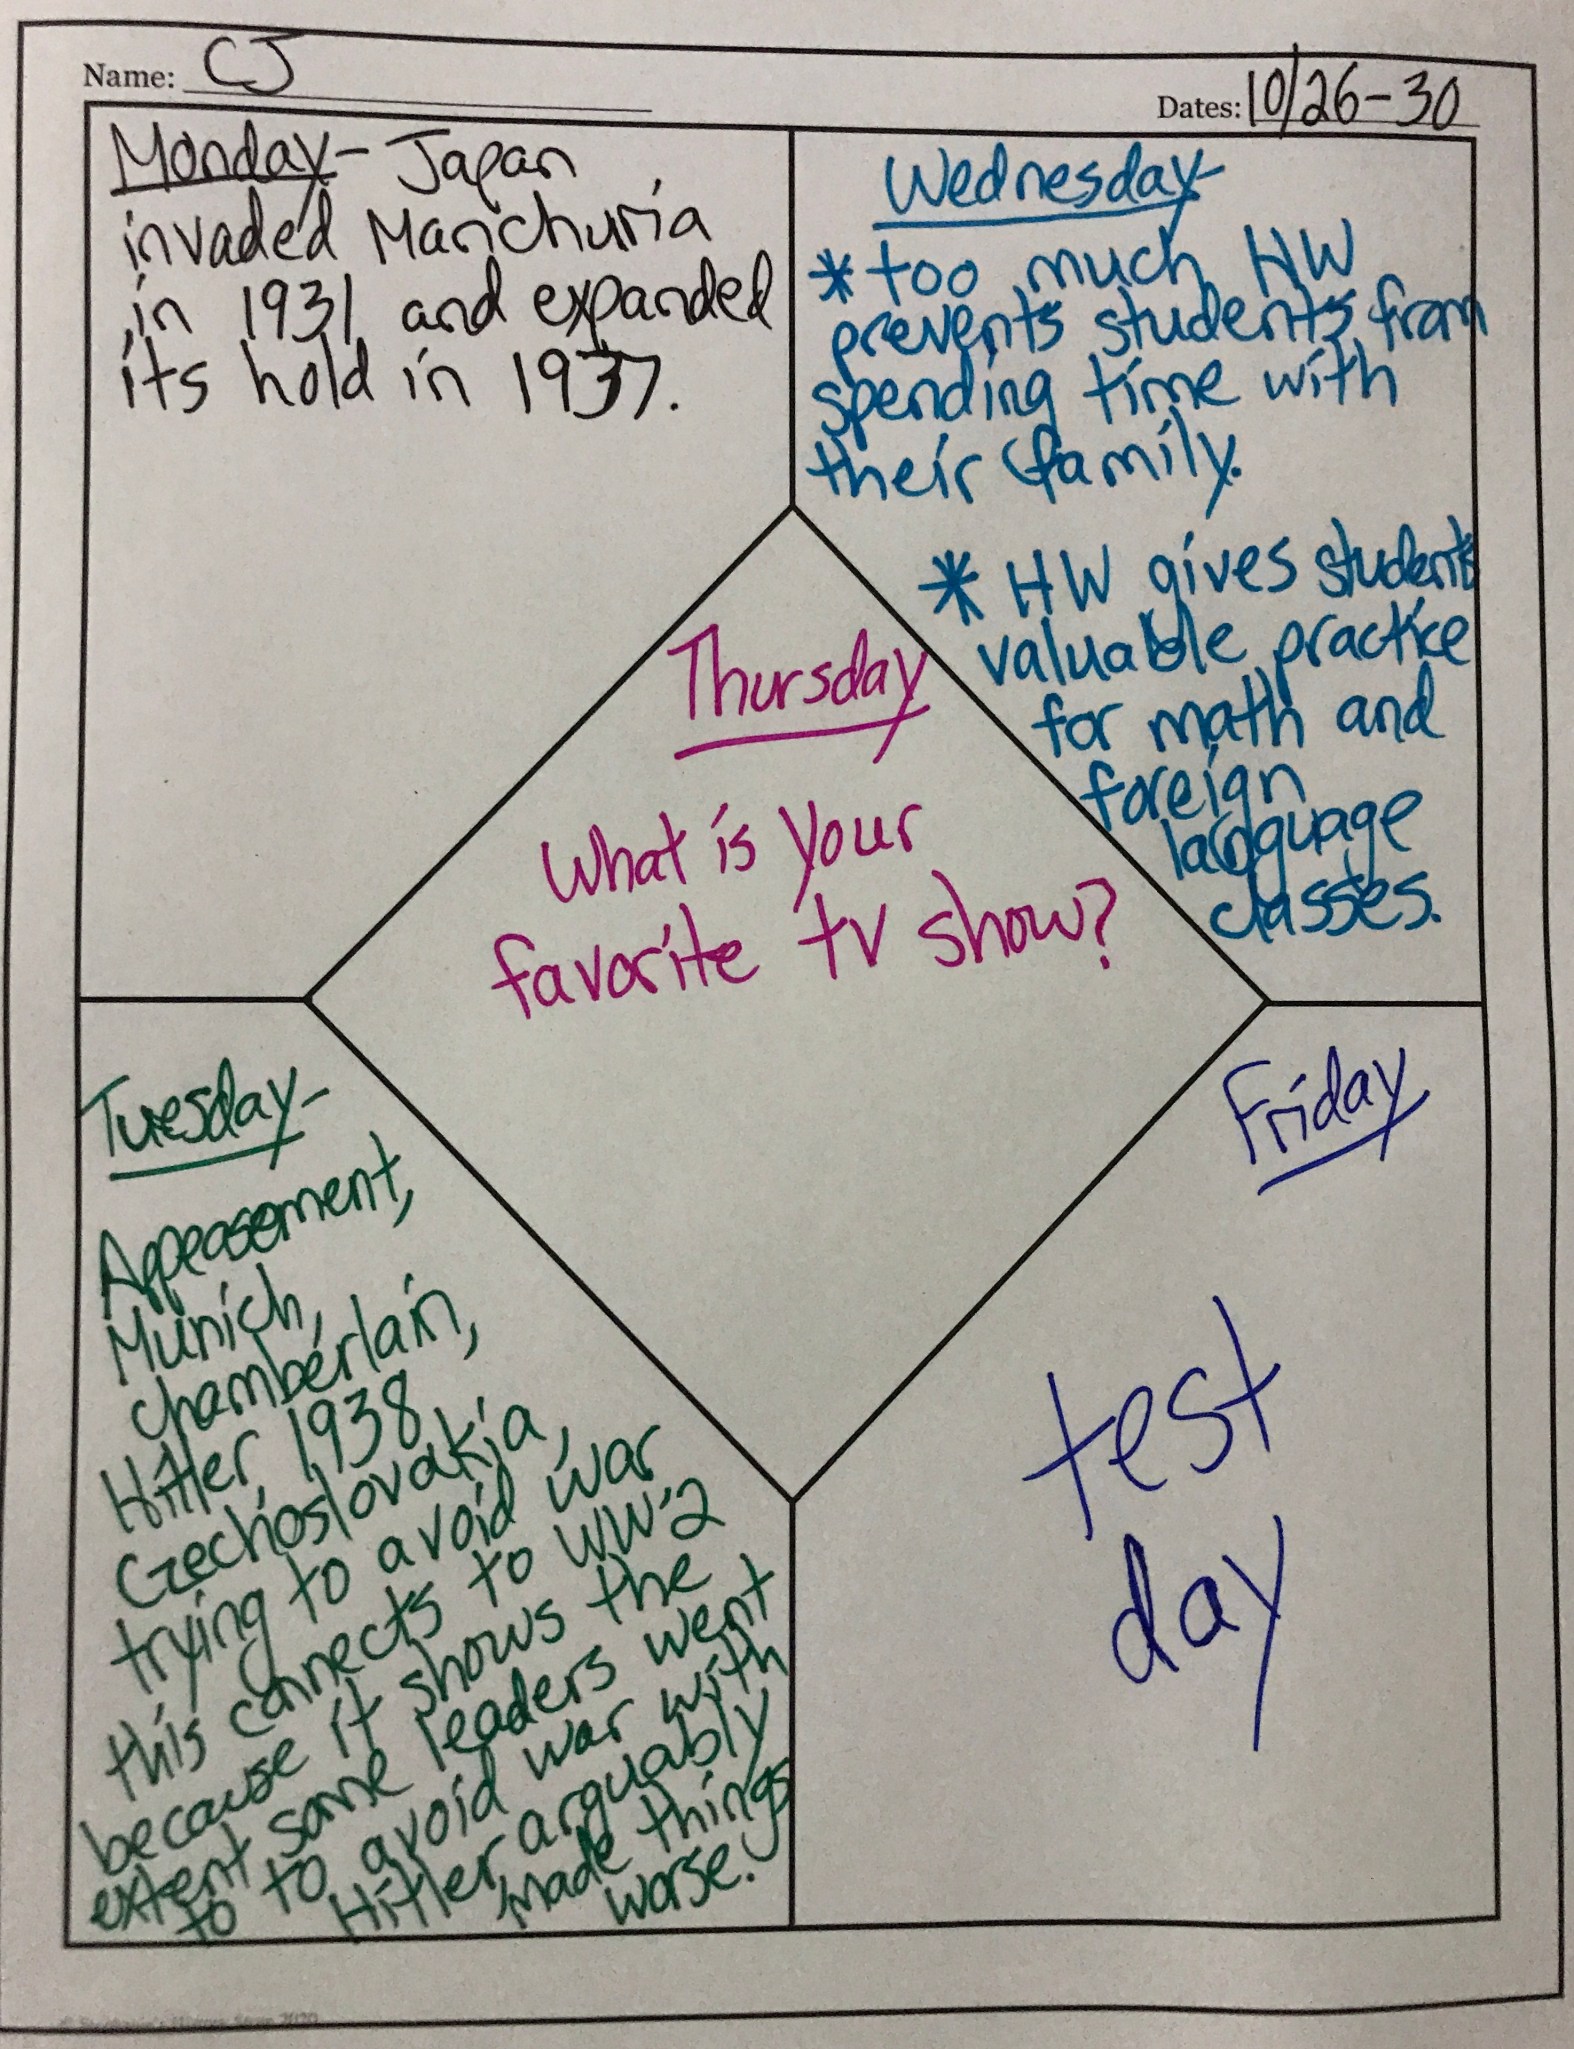 Name: CJ
Dates: 10/26-30
Monday- Japan
invaded Manchuria
in 1931 and expanded
its hold in 1937.
Wednesday-
* too much HW
prevents students from
spending time with
their family.
* HW gives students
valuable practice
for math and
foreign
language
classes.
Thursday
What is your
favorite tv show?
Tuesday-
Appeasement,
Munich,
Chamberlain,
Hitler, 1938
Czechoslovakia,
trying to avoid war
this connects to WW2
because it shows the
extent some leaders went
to to avoid war with
Hitler arguably
made things
worse.
Friday
test
day
2020